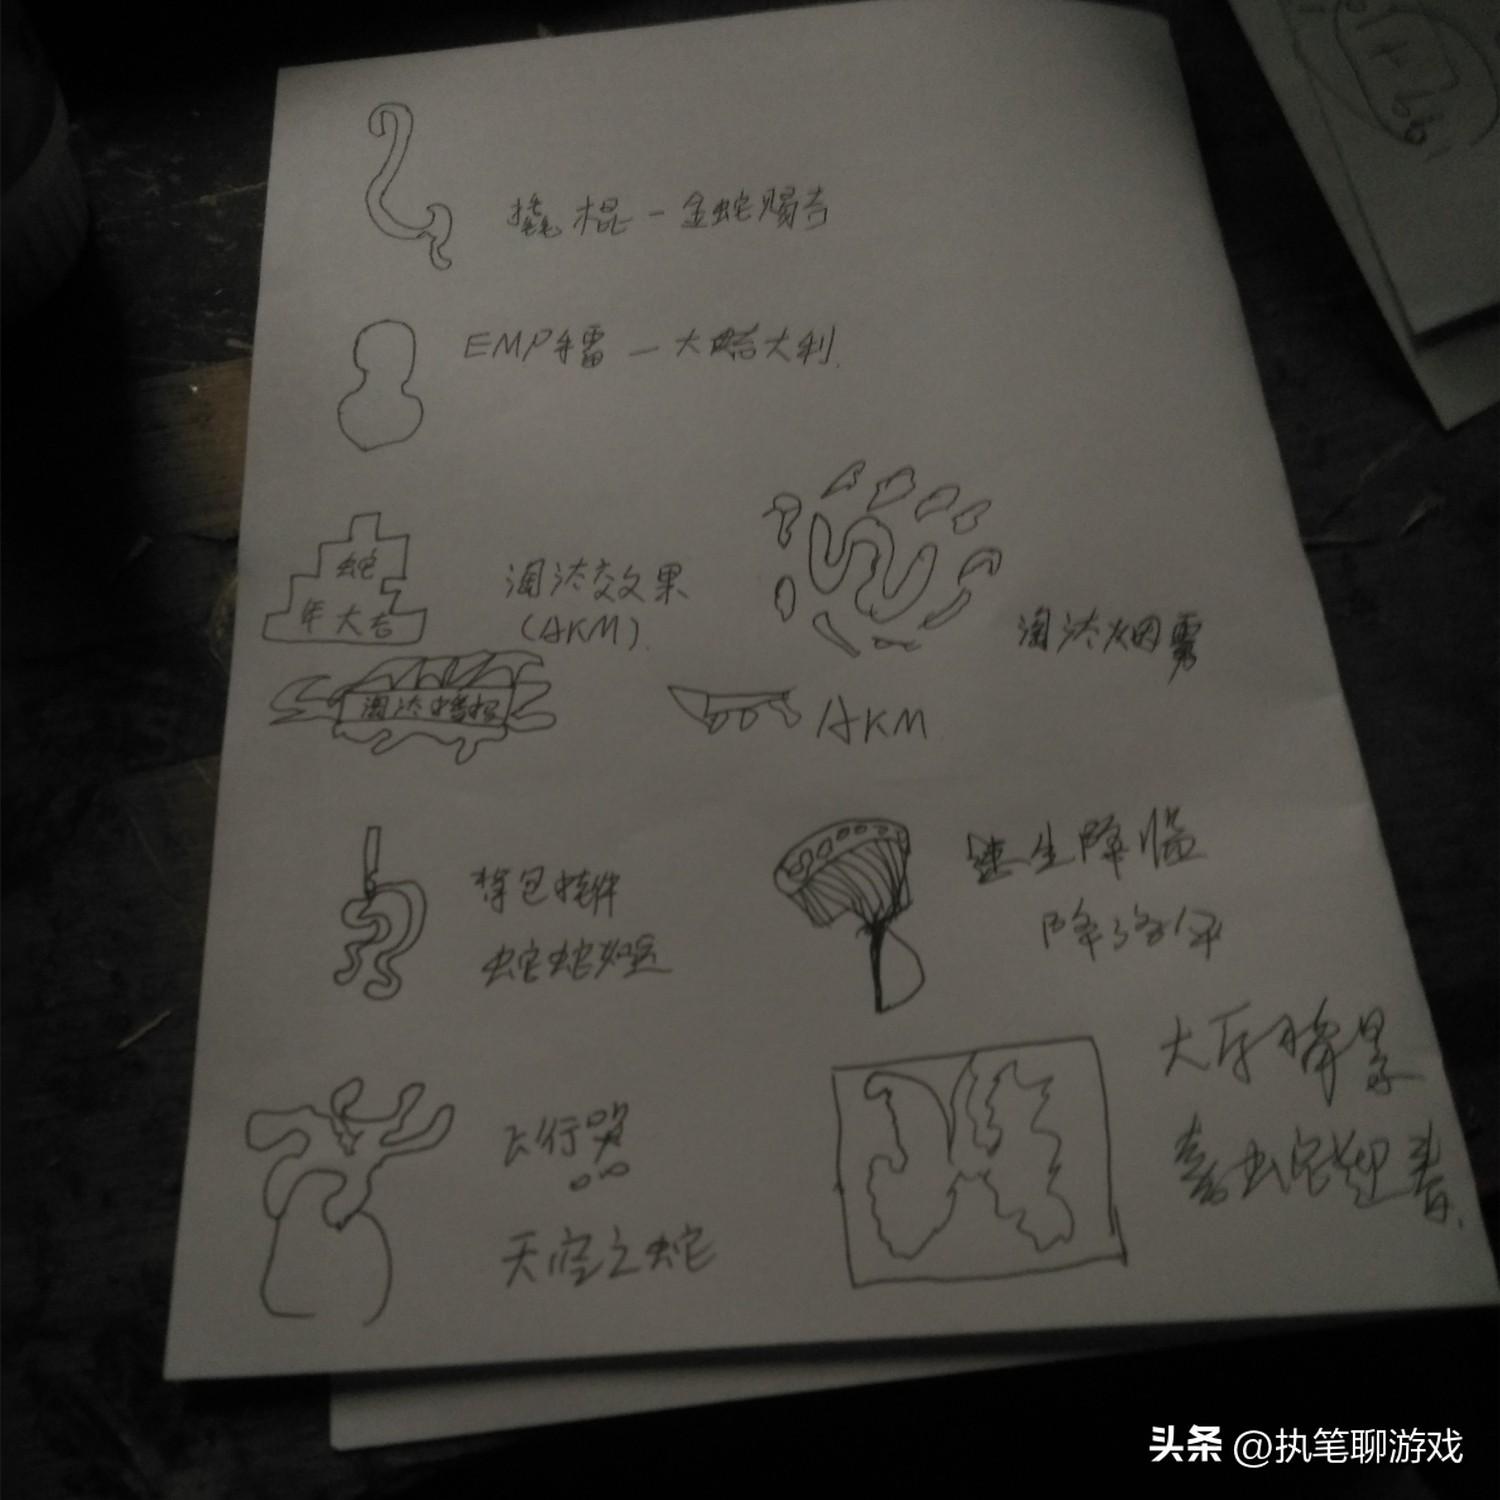 撬棍 - 金蛇赐吉
EMP手雷 - 大吉大利.
蛇
年大吉
淘汰效果
(AKM).
淘汰烟雾
淘汰播报
AKM
背包挂件
蛇蛇如意
生降临
降落伞
飞行器
天空之蛇
大厅背景
喜 迎春.
头条 @执笔聊游戏